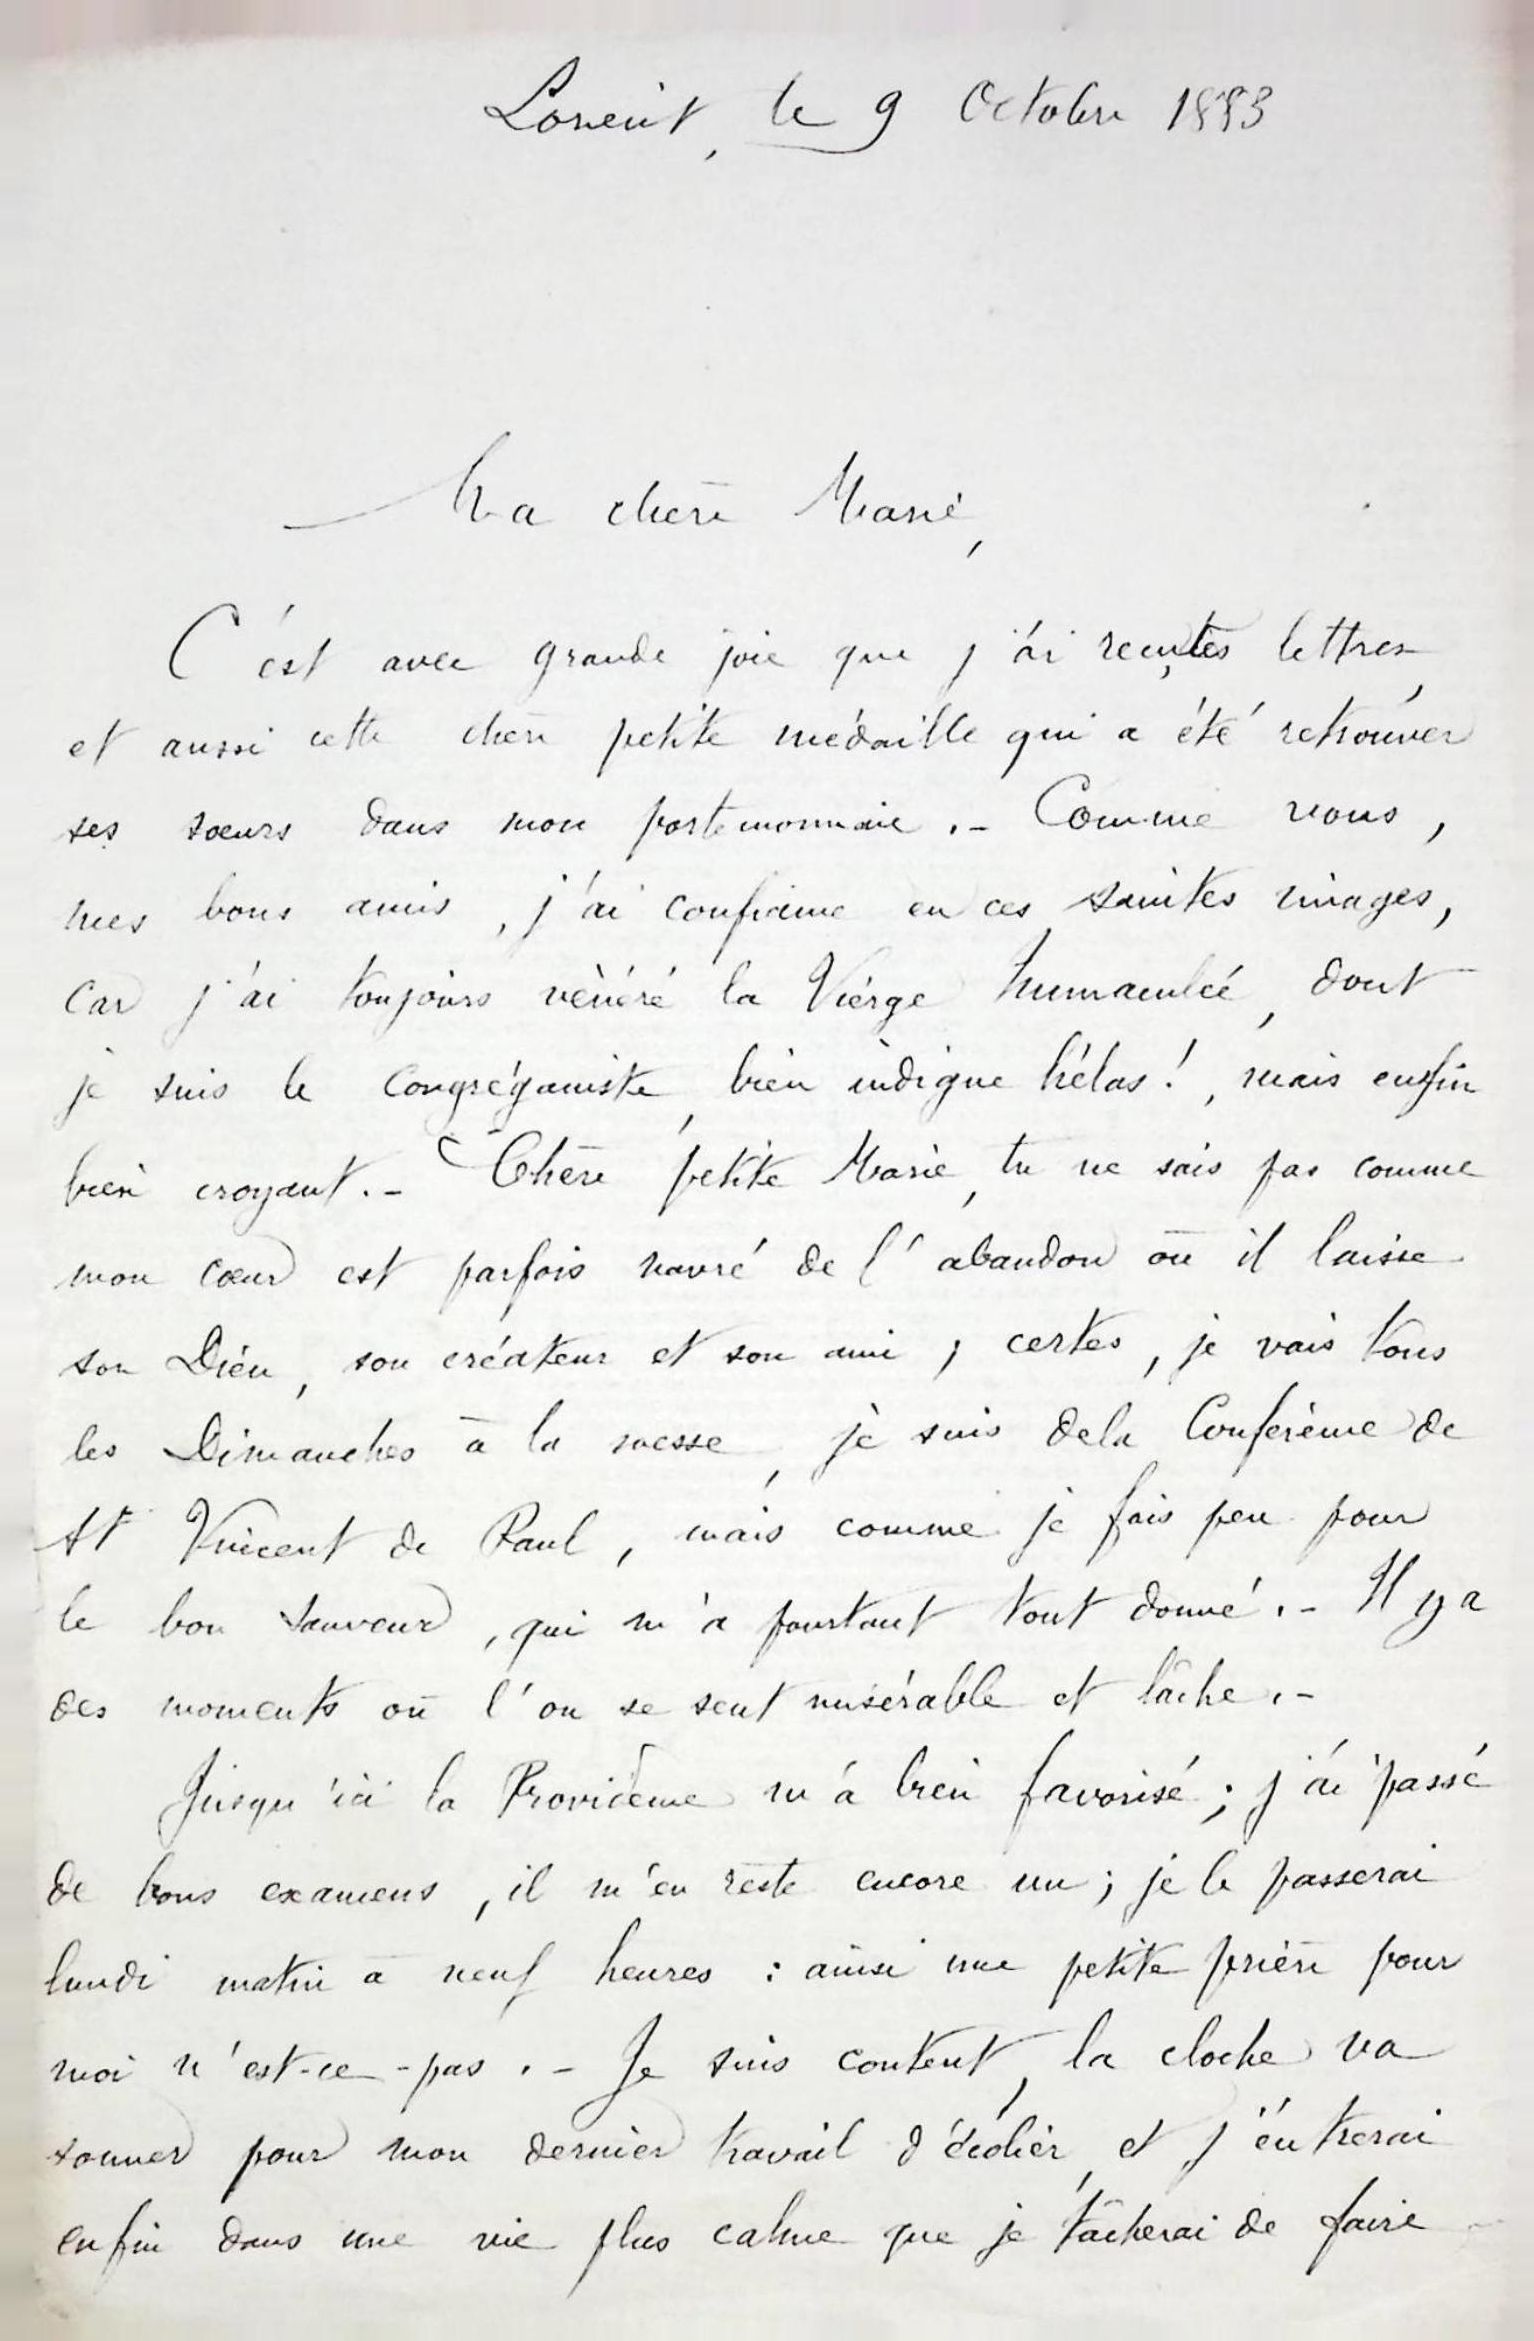 Lorient, le 9 Octobre 1883
Ma chère Marie,
C'est avec grande joie que j'ai reçu tes lettres,
et aussi cette chère petite médaille qui a été retrouver
ses sœurs dans mon portemonnaie .- Comme vous,
mes bons amis, j'ai confiance en ces saintes images,
car j'ai toujours vénéré la Vierge Immaculée, dont
je suis le congréganiste, bien indigne hélas!, mais enfin
bien croyant .- Chère petite Marie, tu ne sais pas comme
mon cœur est parfois navré de l'abandon où il laisse
son Dieu, son créateur et son ami ; certes, je vais tous
les Dimanches à la messe, je suis de la Conférence de
St Vincent de Paul, mais comme je fais peu pour
le bon Sauveur, qui m'a pourtant tout donné .- Il y a
des moments où l'on se sent misérable et lâche .-
Jusqu'ici la Providence m'a bien favorisé ; j'ai passé
de bons examens, il m'en reste encore un ; je le passerai
lundi matin à neuf heures : ainsi une petite prière pour
moi n'est-ce-pas .- Je suis content, la cloche va
sonner pour mon dernier travail d'écolier, et j'entrerai
enfin dans une vie plus calme que je tâcherai de faire